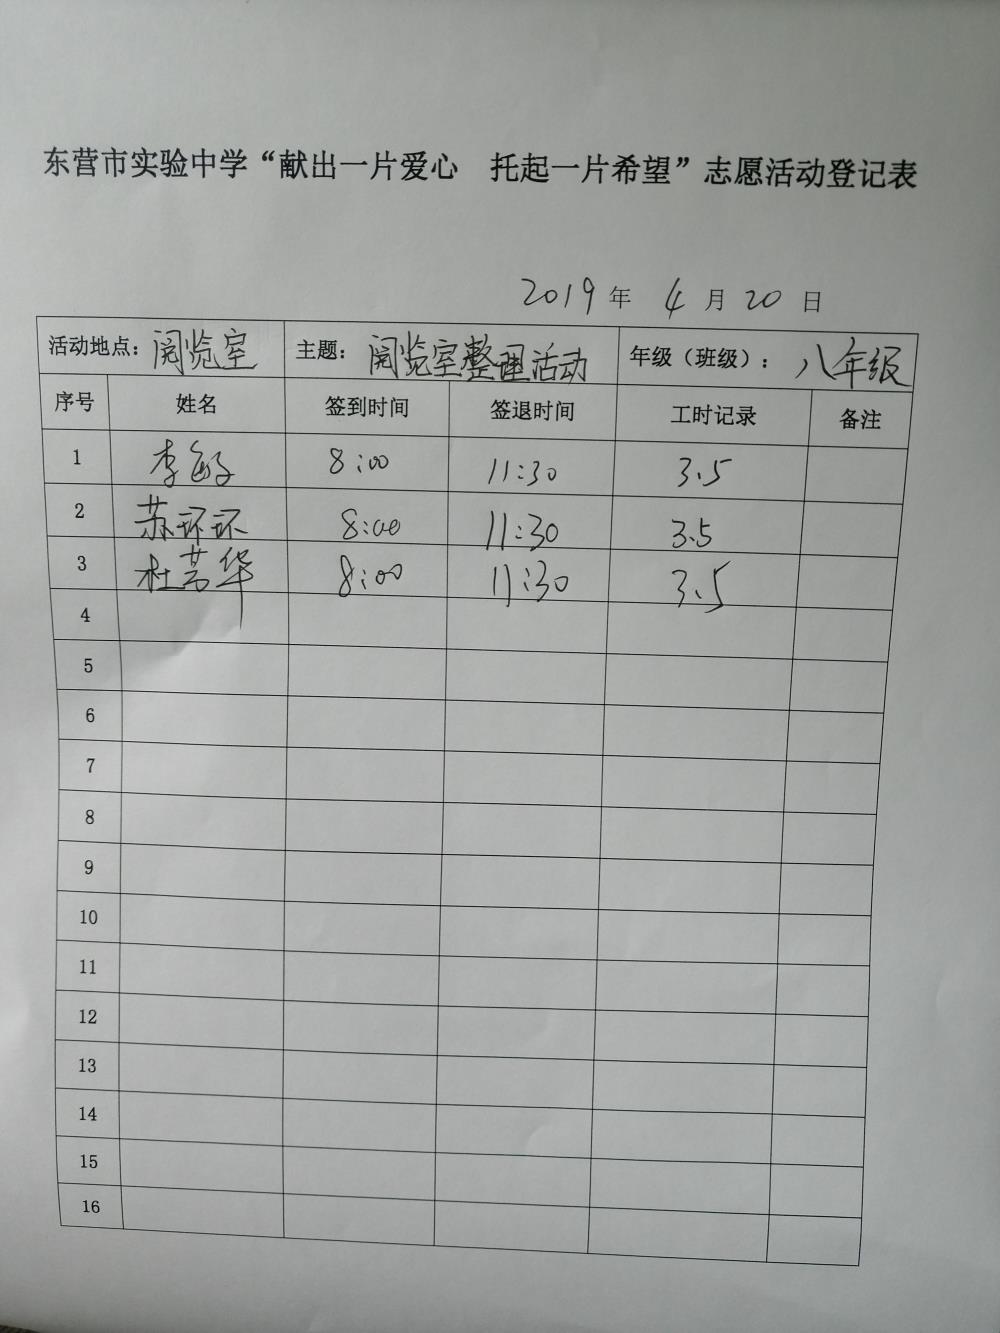 东营市实验中学“献出一片爱心 托起一片希望”志愿活动登记表
2019 年 4 月 20 日
活动地点: 阅览室 主题: 阅览室整理活动 年级（班级）: 八年级
序号 姓名 签到时间 签退时间 工时记录 备注
1 李敏 8:00 11:30 3.5
2 苏环环 8:00 11:30 3.5
3 杜芸华 8:00 11:30 3.5
4
5
6
7
8
9
10
11
12
13
14
15
16